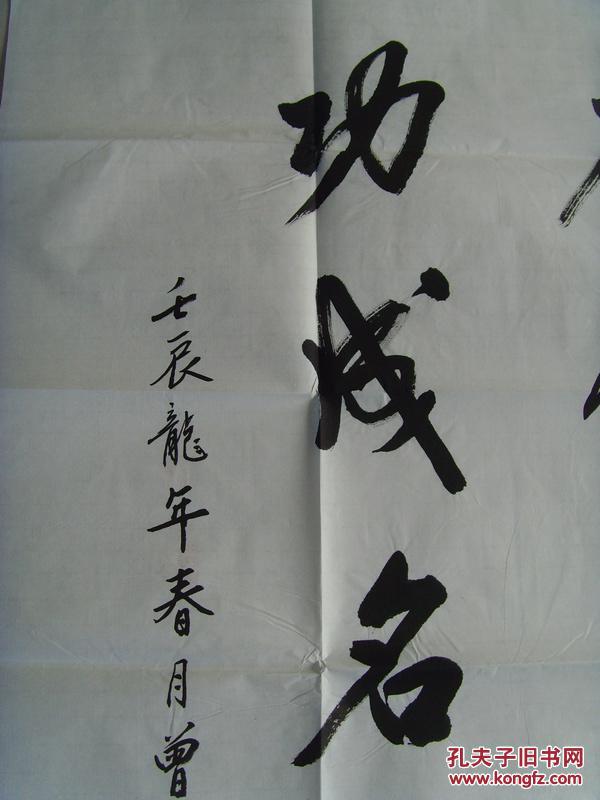 功成名
壬辰龍年春月曾
孔夫子旧书网
www.kongfz.com